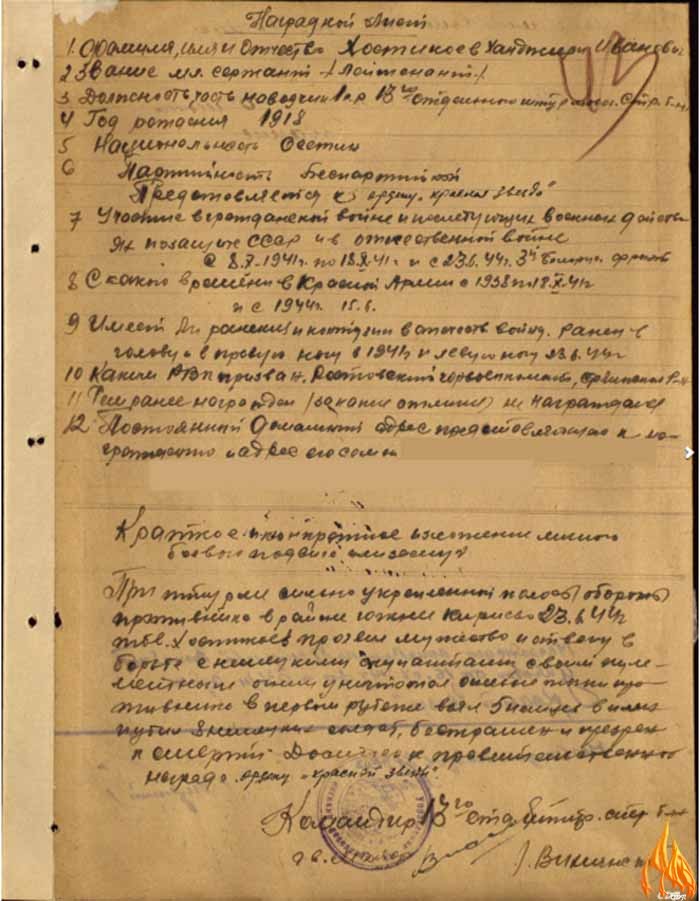 Наградной Лист
1. Фамилия, имя и Отчество Хостикоев Ханджери Иванович
2 Звание мл. сержант (Лейтенант)
3 Должность часть наводчик 13го отдельного штур
4 Год рождения 1918
5 Национальность Осетин
6 Партийность Беспартийной
Представляется к ордену „красная звезда"
7 Участие в гражданской войне и последующих военных действи
ях по защите СССР и в отечественной войне
по 18.X.41г и с 23.6.44г. 3й Белорус. фронт
8 С какого времени в Красной Армии с 1938 по 18.X.41г
и с 1944г. 15.6.
9 Имеет ли ранения и контузии в отечеств войну. Ранен в
голову и в правую ногу в 1941г и левую ногу 23.6.44г
10 Каким РВК призван. Ростовский горвоенкомат,
11 Чем ранее награжден (за какие отличия) не награждался
12 Постоянный домашний адрес представляемого к на
граждению и адрес его семьи
Краткое и конкретное изложение личного
боевого подвига или заслуг
При штурме сильно укрепленной полосы обороны
противника в районе южнее Кириево 23.6.44г
Хостикоев проявил мужество и отвагу в
борьбе с немецкими оккупантами своим пуле-
метным огнем уничтожал огневые точки про
тивника в первом рубеже взял
8 немецких солдат, бесстрашен и презрен
к смерти Достоин к правительственной
награде ордену „красной звезды".
Командир 13го отд. штур. стр. б-на
гв.